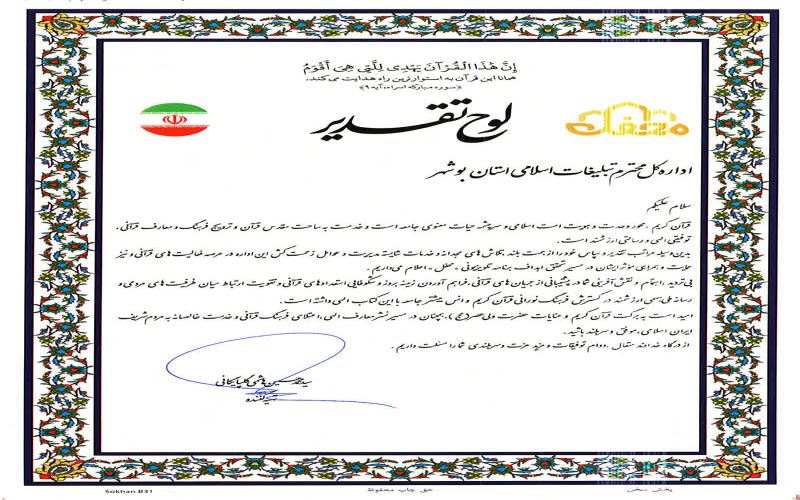 إِنَّ هَٰذَا الْقُرْآنَ يَهْدِي لِلَّتِي هِيَ أَقْوَمُ
همانا این قرآن به استوارترین راه هدایت می‌کند.
«سوره مبارکه اسراء، آیه ۹»
لوح تقدیر
محفل
اداره کل محترم تبلیغات اسلامی استان بوشهر
سلام علیکم
قرآن کریم، محور وحدت و هویت امت اسلامی و سرچشمه حیات معنوی جامعه است و خدمت به ساحت مقدس قرآن و ترویج فرهنگ و معارف قرآنی،
توفیقی الهی و رسالتی ارزشمند است.
بدین‌وسیله مراتب تقدیر و سپاس خود را از همت بلند، تلاش‌های مجدانه و خدمات شایسته مدیریت و عوامل زحمت‌کش این اداره در عرصه فعالیت‌های قرآنی و نیز
حمایت و همراهی مؤثر ایشان در مسیر تحقق اهداف برنامه تلویزیونی «محفل» اعلام می‌داریم.
بی‌تردید، اهتمام و نقش‌آفرینی شما در پشتیبانی از جریان‌های قرآنی، فراهم آوردن زمینه بروز و شکوفایی استعدادهای قرآنی و تقویت ارتباط میان ظرفیت‌های مردمی و
رسانه ملی، سهمی ارزشمند در گسترش فرهنگ نورانی قرآن کریم و انس بیشتر جامعه با این کتاب الهی داشته است.
امید است به برکت قرآن کریم و عنایات حضرت ولی‌عصر(عج)، همچنان در مسیر نشر معارف الهی، اعتلای فرهنگ قرآنی و خدمت خالصانه به مردم شریف
ایران اسلامی، موفق و سربلند باشید.
از درگاه خداوند متعال، دوام توفیقات و مزید عزت و سربلندی شما را مسئلت داریم.
سید محمد حسین هاشمی گلپایگانی
تهیه‌کننده
پخش سخن
حق چاپ محفوظ
Sokhan B31